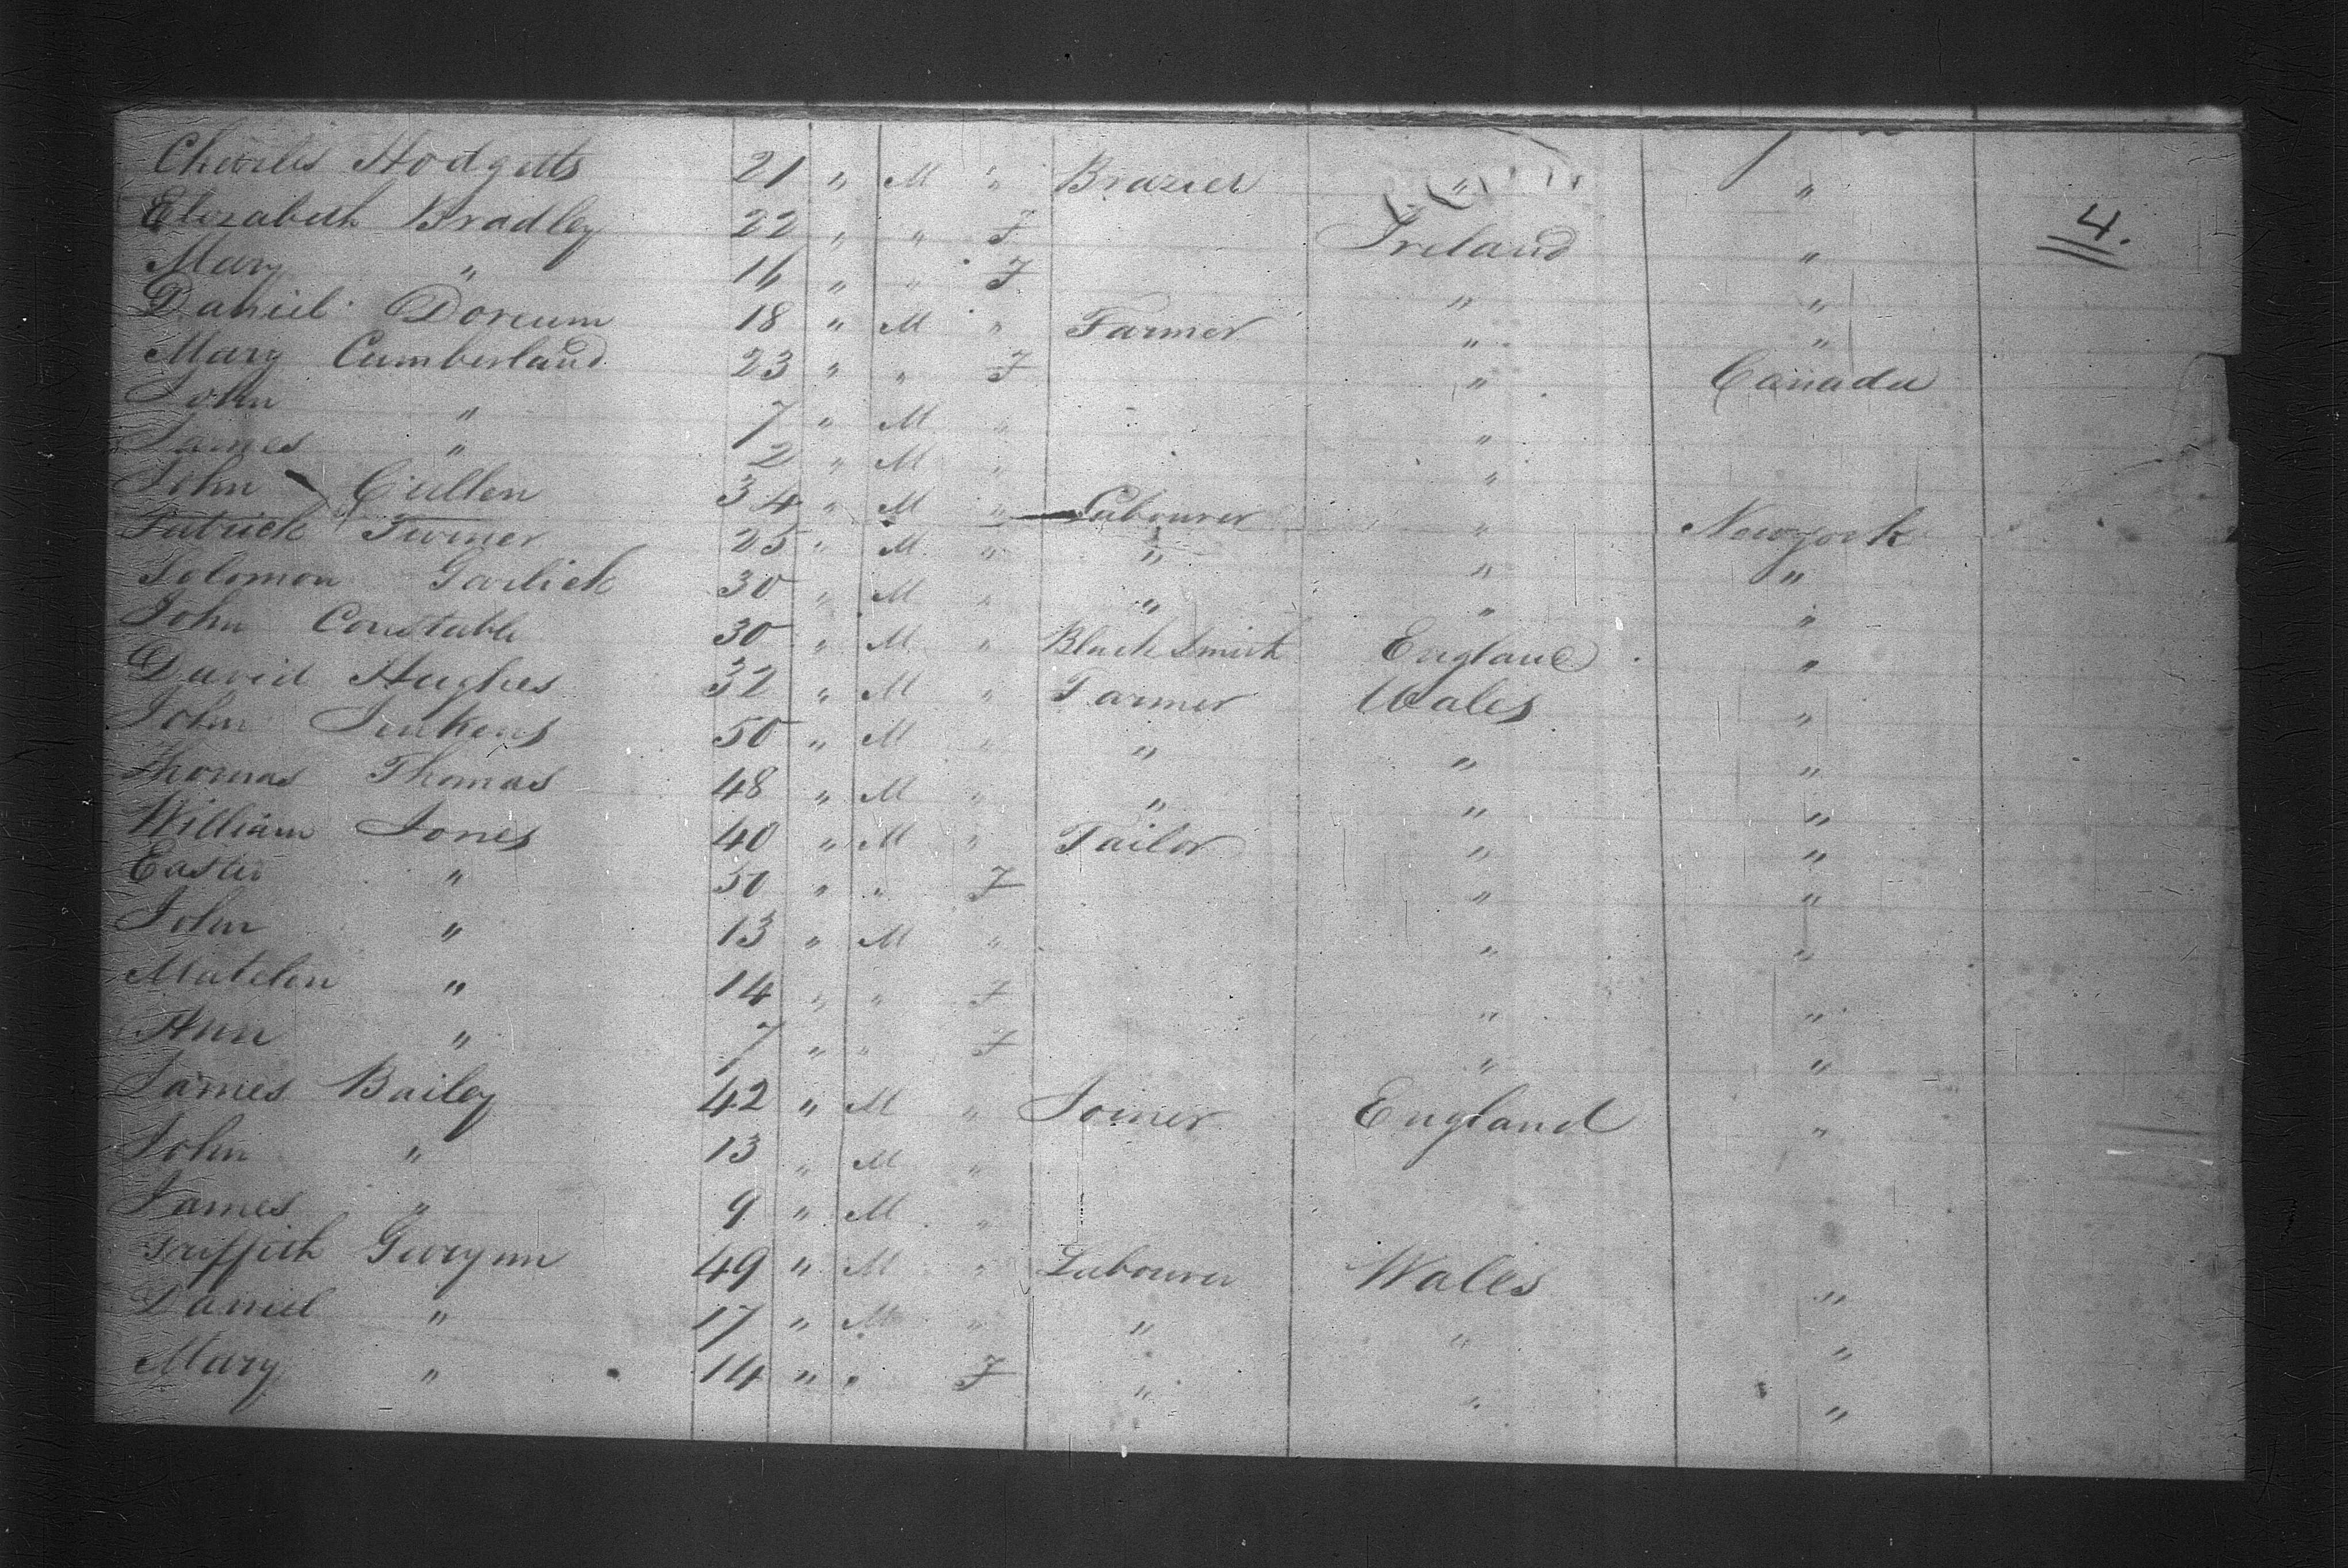 Charles Hodgetts 21 " M " Brazier " "
Elizabeth Bradley 22 " " F Ireland " 4.
Mary " 16 " " F " "
Daniel Doreum 18 " M " Farmer " "
Mary Cumberland 23 " " F " Canada
John " 7 " M " "
James " 2 " M " "
John Cullen 34 " M " Labourer " New york
Patrick Turner 25 " M " " " "
Solomon Garlick 30 " M " " " "
John Constable 30 " M " Black Smith England "
David Hughes 32 " M " Farmer Wales "
John Jenkens 50 " M " " " "
Thomas Thomas 48 " M " " " "
William Jones 40 " M " Tailor " "
Easter " 50 " " F " "
John " 13 " M " " "
Matelen " 14 " " F " "
Ann " 7 " " F " "
James Bailey 42 " M " Joiner England "
John " 13 " M "
James " 9 " M "
Griffith Gwynn 49 " M " Labourer Wales "
Daniel " 17 " M " " " "
Mary " 14 " " F " " "